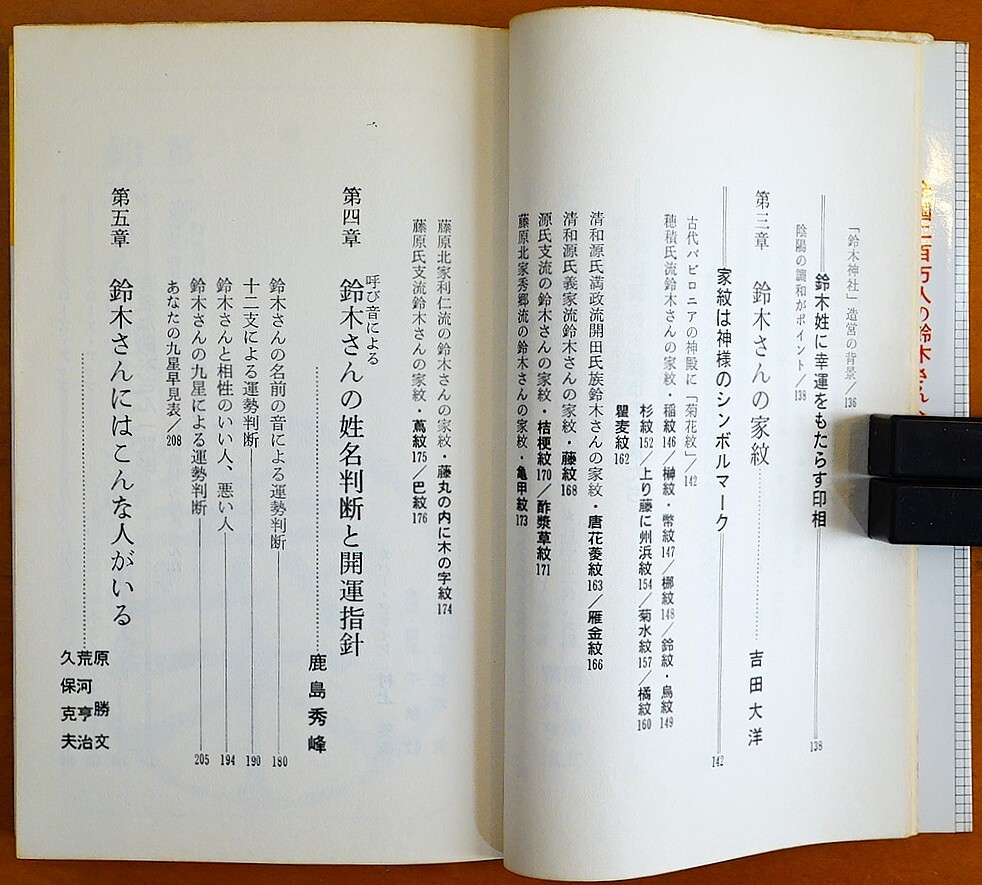 「鈴木神社」造営の背景／136
鈴木姓に幸運をもたらす印相 138
陰陽の調和がポイント／138
第三章　鈴木さんの家紋 吉田大洋
家紋は神様のシンボルマーク 142
古代バビロニアの神殿に「菊花紋」／142
穂積氏流鈴木さんの家紋・稲紋146／榊紋・幣紋147／梛紋148／鈴紋・烏紋149
杉紋152／上り藤に州浜紋154／菊水紋157／橘紋160
瞿麦紋162
清和源氏満政流開田氏族鈴木さんの家紋・唐花菱紋163／雁金紋166
清和源氏義家流鈴木さんの家紋・藤紋168
源氏支流の鈴木さんの家紋・桔梗紋170／酢漿草紋171
藤原北家秀郷流の鈴木さんの家紋・亀甲紋173
藤原北家利仁流の鈴木さんの家紋・藤丸の内に木の字紋174
藤原氏支流鈴木さんの家紋・蔦紋175／巴紋176
第四章　呼び音による鈴木さんの姓名判断と開運指針 鹿島秀峰
鈴木さんの名前の音による運勢判断 180
十二支による運勢判断 190
鈴木さんと相性のいい人、悪い人 194
鈴木さんの九星による運勢判断 205
あなたの九星早見表／208
第五章　鈴木さんにはこんな人がいる
原　勝文
荒河亨治
久保克夫